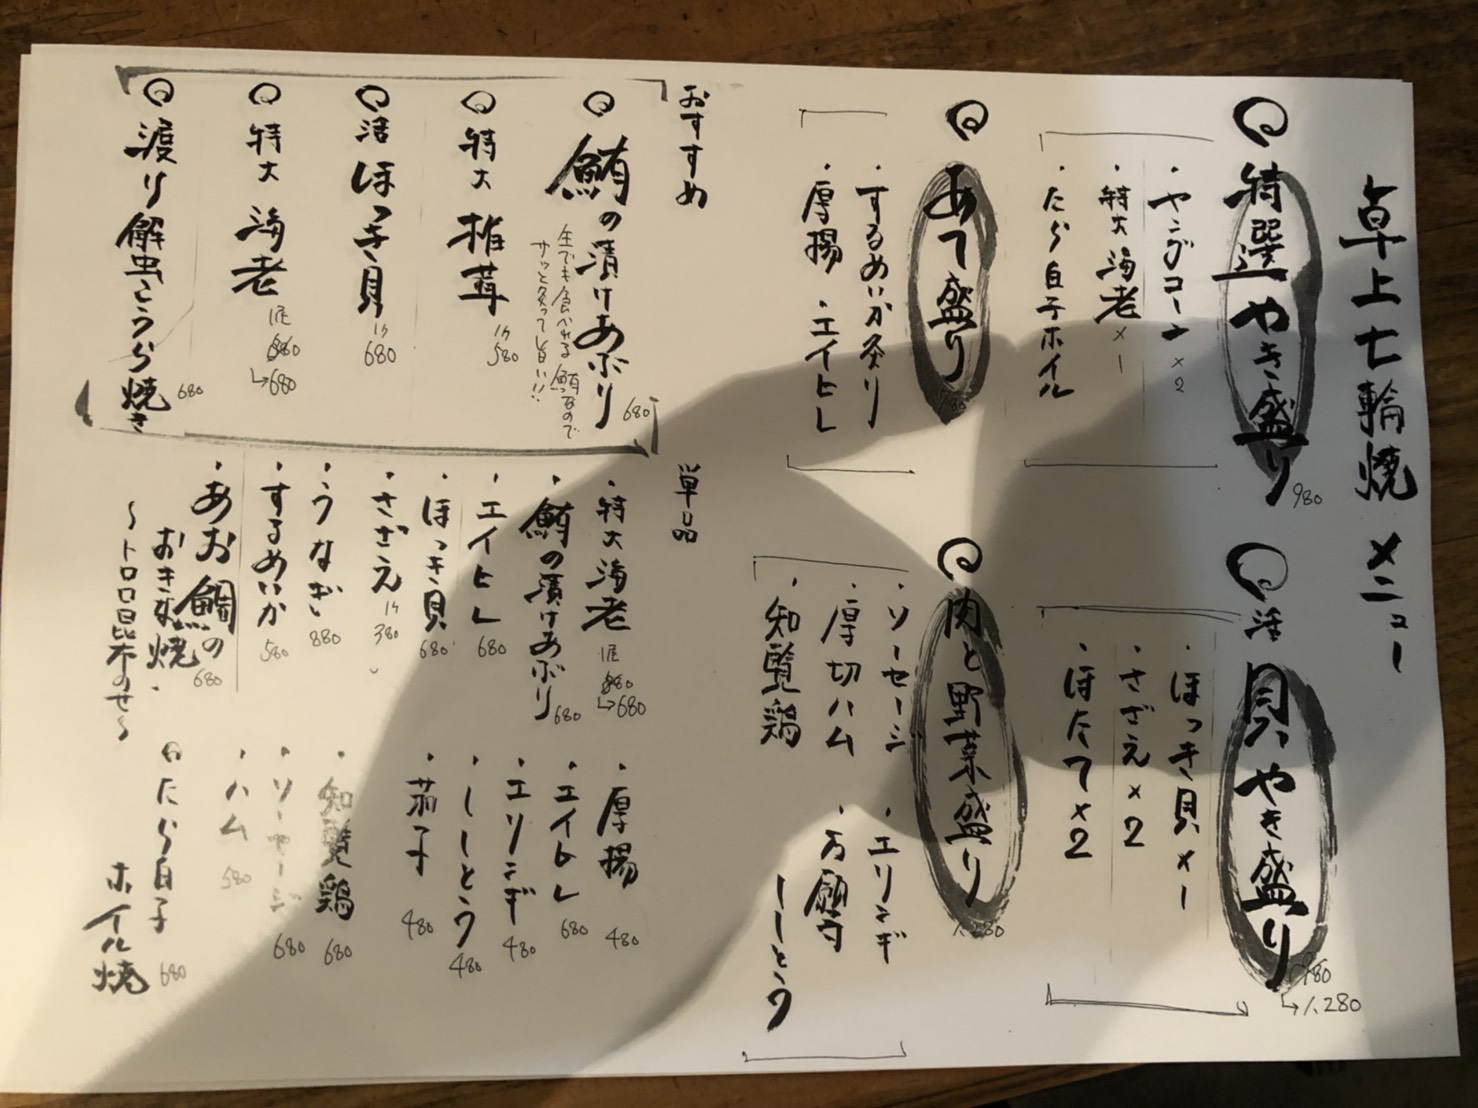 卓上七輪焼 メニュー
特選やき盛り 980
・ヤングコーン×2
・特大 海老×1
・たら白子ホイル
活 貝やき盛り
→1.280
・ほっき貝×1
・さざえ×2
・ほたて×2
あて盛り
・するめいか炙り
・厚揚 ・エイヒレ
肉と野菜盛り 1.280
・ソーセージ
・厚切ハム
・知覧鶏
・エリンギ
・万願寺
ししとう
おすすめ
鮪の漬けあぶり 680
生でも食べれる鮪なので
サッと炙って旨い!!
特大 椎茸 1ケ 580
活 ほっき貝 1ケ 680
特大 海老 1尾 →680
渡り蟹こうら焼き 680
単品
・特大 海老 1尾 →680
・鮪の漬けあぶり 680
・エイヒレ 680
・ほっき貝 680
・さざえ 1ケ 380
・うなぎ 880
・するめいか 580
・あお鯛の
おきな焼 680
〜トロロ昆布のせ〜
・厚揚 480
・エイヒレ 680
・エリンギ 480
・ししとう 480
・茄子 480
・知覧鶏 680
・ソーセージ 680
・ハム 580
たら白子
ホイル焼 680